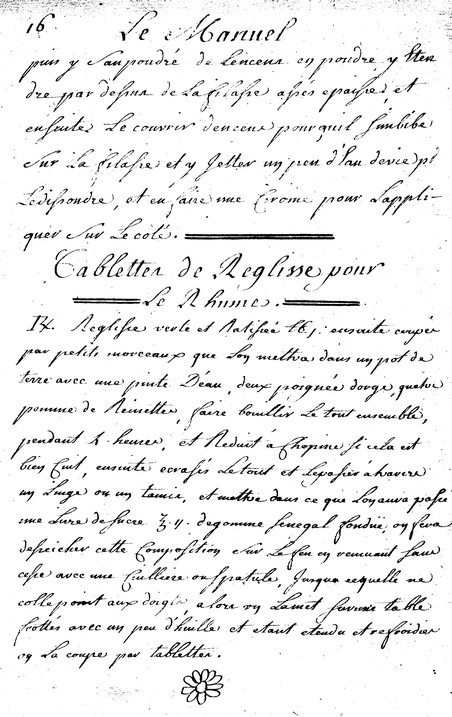 16 Le Manuel
puis y Saupoudré de Lencens en poudre, y Eten
dre par dessus de La filasse assés épaisse, et
ensuite, Le couvrir dencens pourquil Simbibe
Sur La filasse et y Jetter un peu d'Eau devie pr
Ledissoudre, et en faire une Cirome pour Lappli-
quer Sur Le coté.
Tablettes de Reglisse pour
Le Rhume.
Reglisse verte et Ratissée ensuite coupés
par petits morceaux que Lon mettra dans un pot de
terre avec une pinte D'eau, deux poignée dorge, quatre
pomme de Reinettes, faire bouillir Le tout ensemble,
pendant heures, et Reduit à Chopine si cela est
bien Cuit, ensuite ecrasés Letout et Lepassés àtravers
un Linge ou un tamis, et mettre dans ce que Lonaura passé
une Livre de Sucre ʒ. ij. degomme Senegal fondüe, on fera
deseicher cette Composition Sur Le feu en remuant Sans
cesse avec une Cuilliere ou Spatule, Jusqua cequelle ne
colle point aux doigts, alors on Lamet sur une table
frottés avec un peu d'huille et etant etendu et refroidies
on La coupe par tablettes.